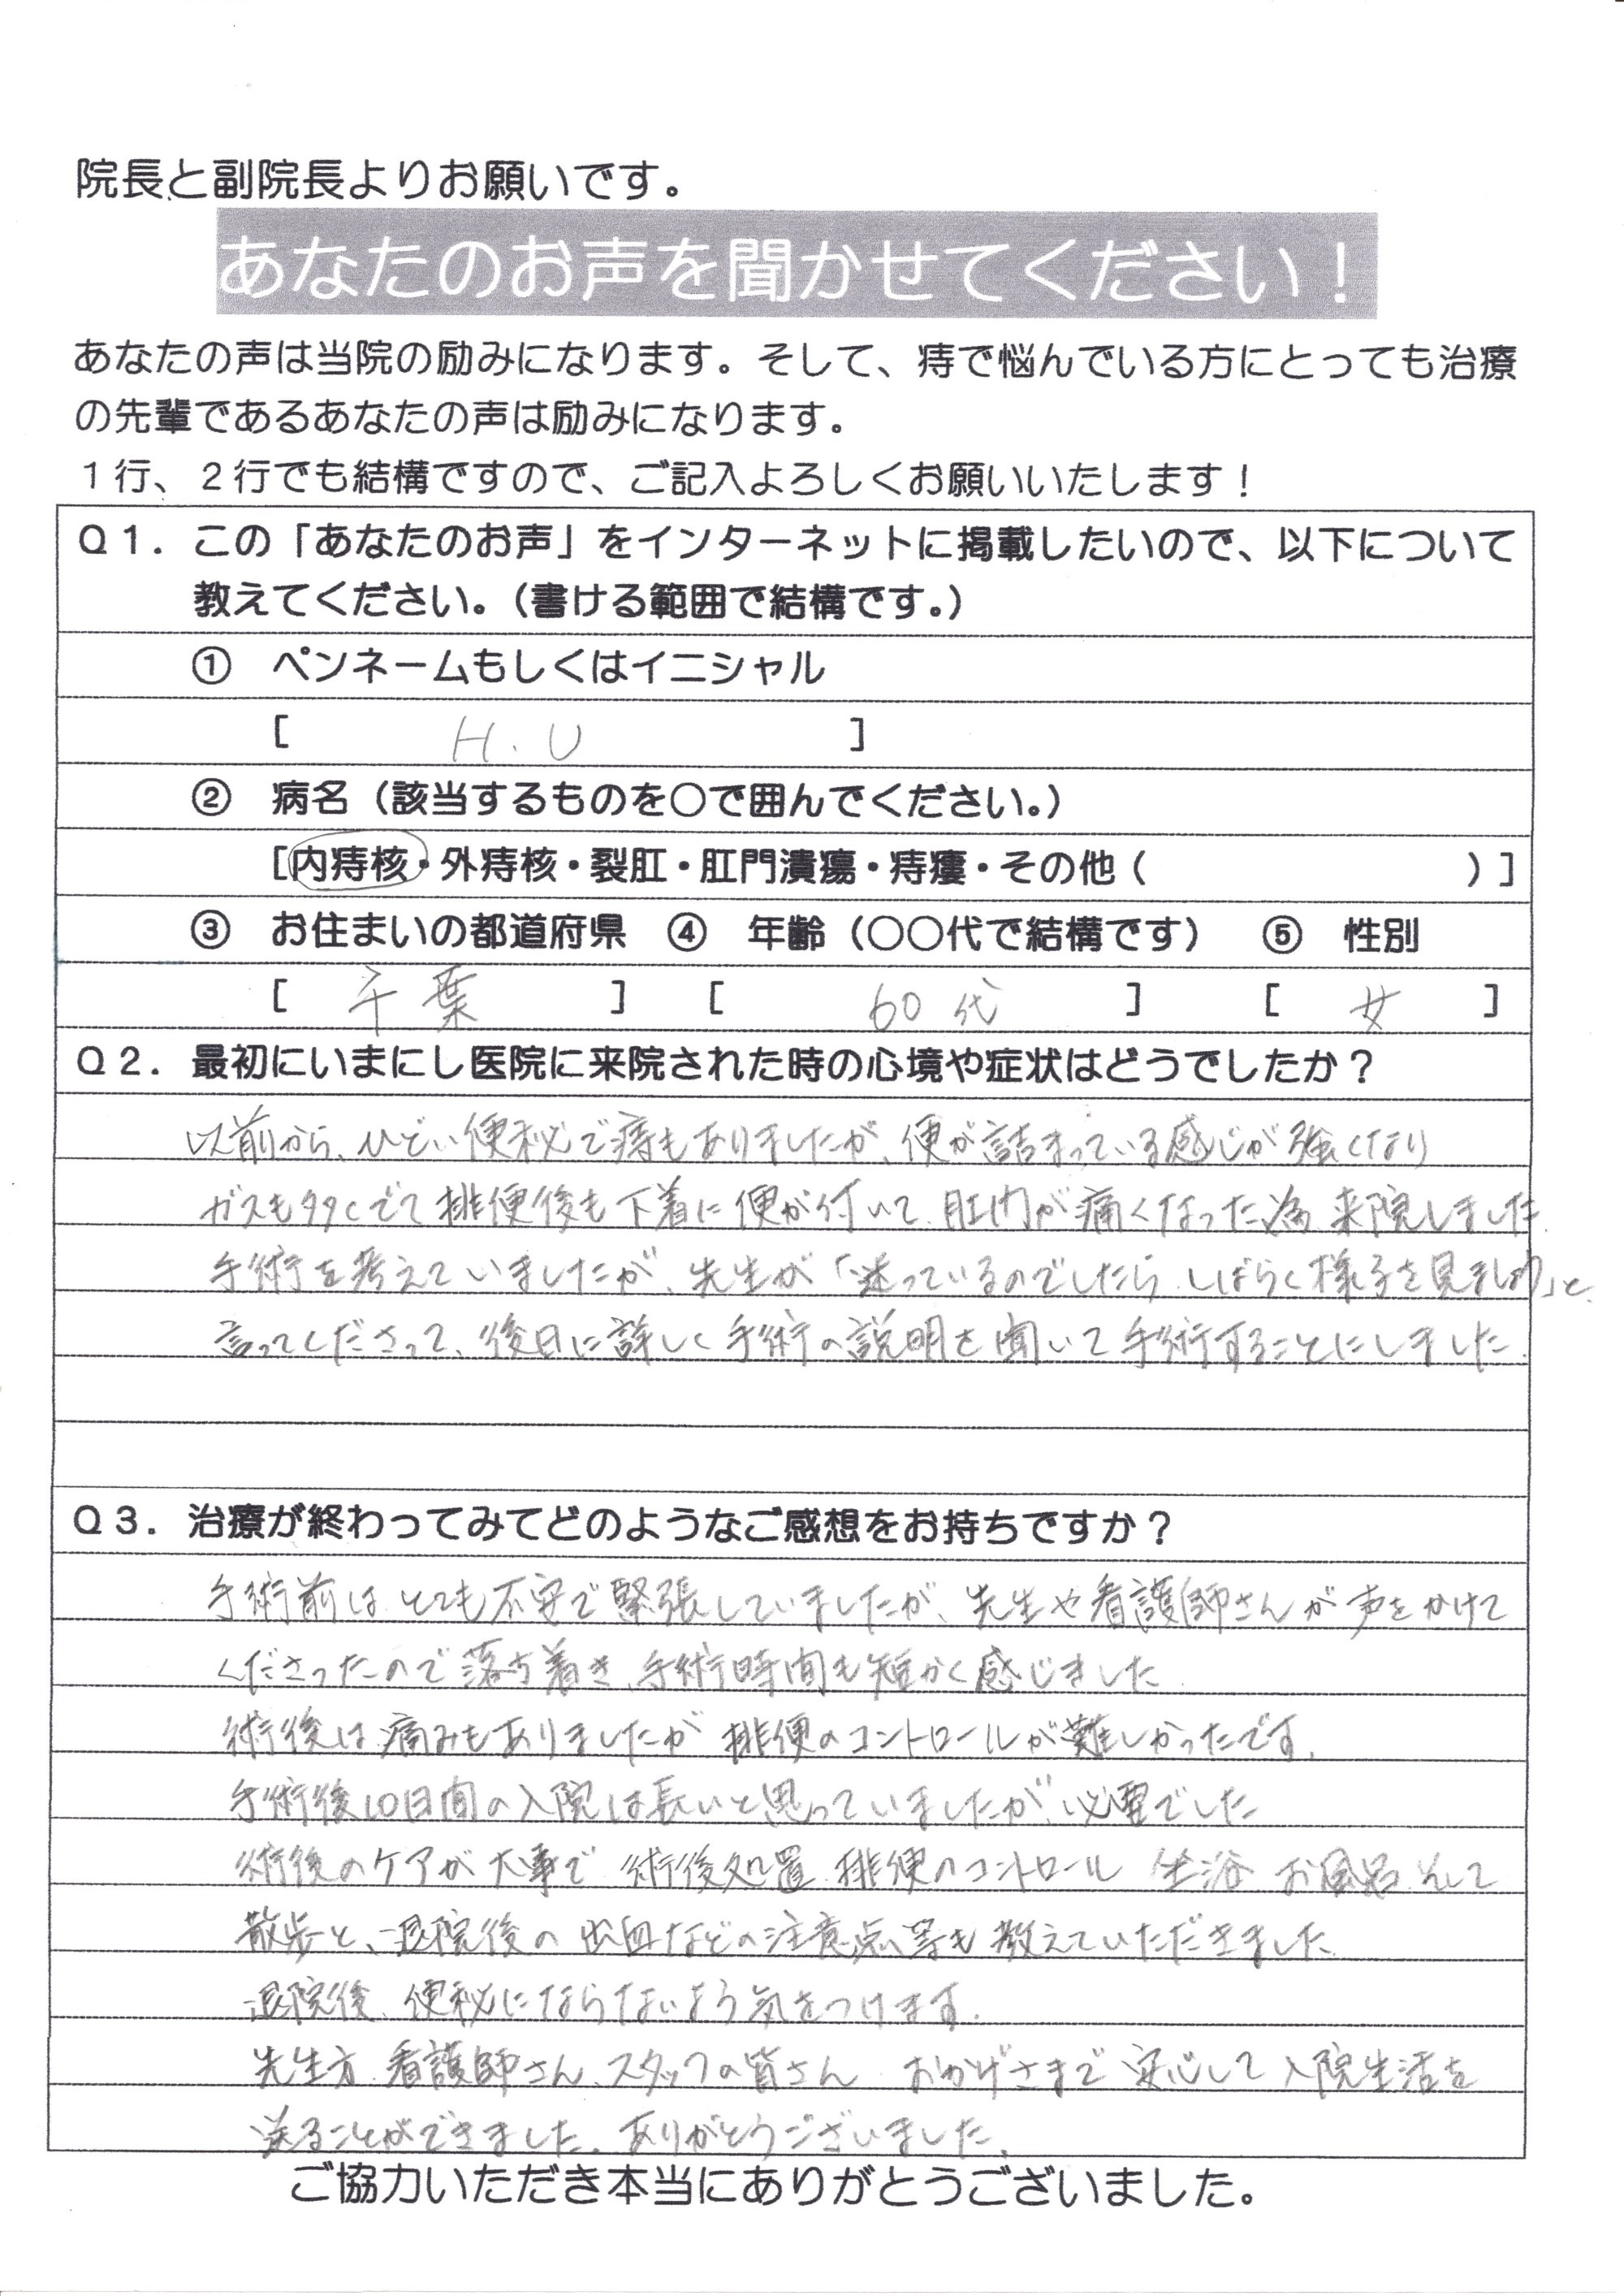 院長と副院長よりお願いです。
あなたのお声を聞かせてください！
あなたの声は当院の励みになります。そして、痔で悩んでいる方にとっても治療
の先輩であるあなたの声は励みになります。
１行、２行でも結構ですので、ご記入よろしくお願いいたします！
Ｑ１．この「あなたのお声」をインターネットに掲載したいので、以下について
教えてください。（書ける範囲で結構です。）
① ペンネームもしくはイニシャル
[ H.U ]
② 病名（該当するものを○で囲んでください。）
[内痔核・外痔核・裂肛・肛門潰瘍・痔瘻・その他（ ）]
③ お住まいの都道府県 ④ 年齢（○○代で結構です） ⑤ 性別
[ 千葉 ] [ 60代 ] [ 女 ]
Ｑ２．最初にいまにし医院に来院された時の心境や症状はどうでしたか？
以前から、ひどい便秘で痔もありましたが、便が詰まっている感じが強くなり
ガスも多くでて排便後も下着に便が付いて、肛門が痛くなった為、来院しました
手術を考えていましたが、先生が「迷っているのでしたら、しばらく様子を見ましょう」と
言ってくださって、後日に詳しく手術の説明を聞いて手術することにしました.
Ｑ３．治療が終わってみてどのようなご感想をお持ちですか？
手術前はとても不安で緊張していましたが、先生や看護師さんが声をかけて
くださったので落ち着き、手術時間も短かく感じました.
術後は痛みもありましたが 排便のコントロールが難しかったです.
手術後10日間の入院は長いと思っていましたが、必要でした
術後のケアが大事で 術後処置 排便のコントロール 坐浴 お風呂 そして
散歩と、退院後の出血などの注意点等も教えていただきました.
退院後、便秘にならないよう気をつけます.
先生方、看護師さん、スタッフの皆さん おかげさまで安心して入院生活を
送ることができました. ありがとうございました.
ご協力いただき本当にありがとうございました。